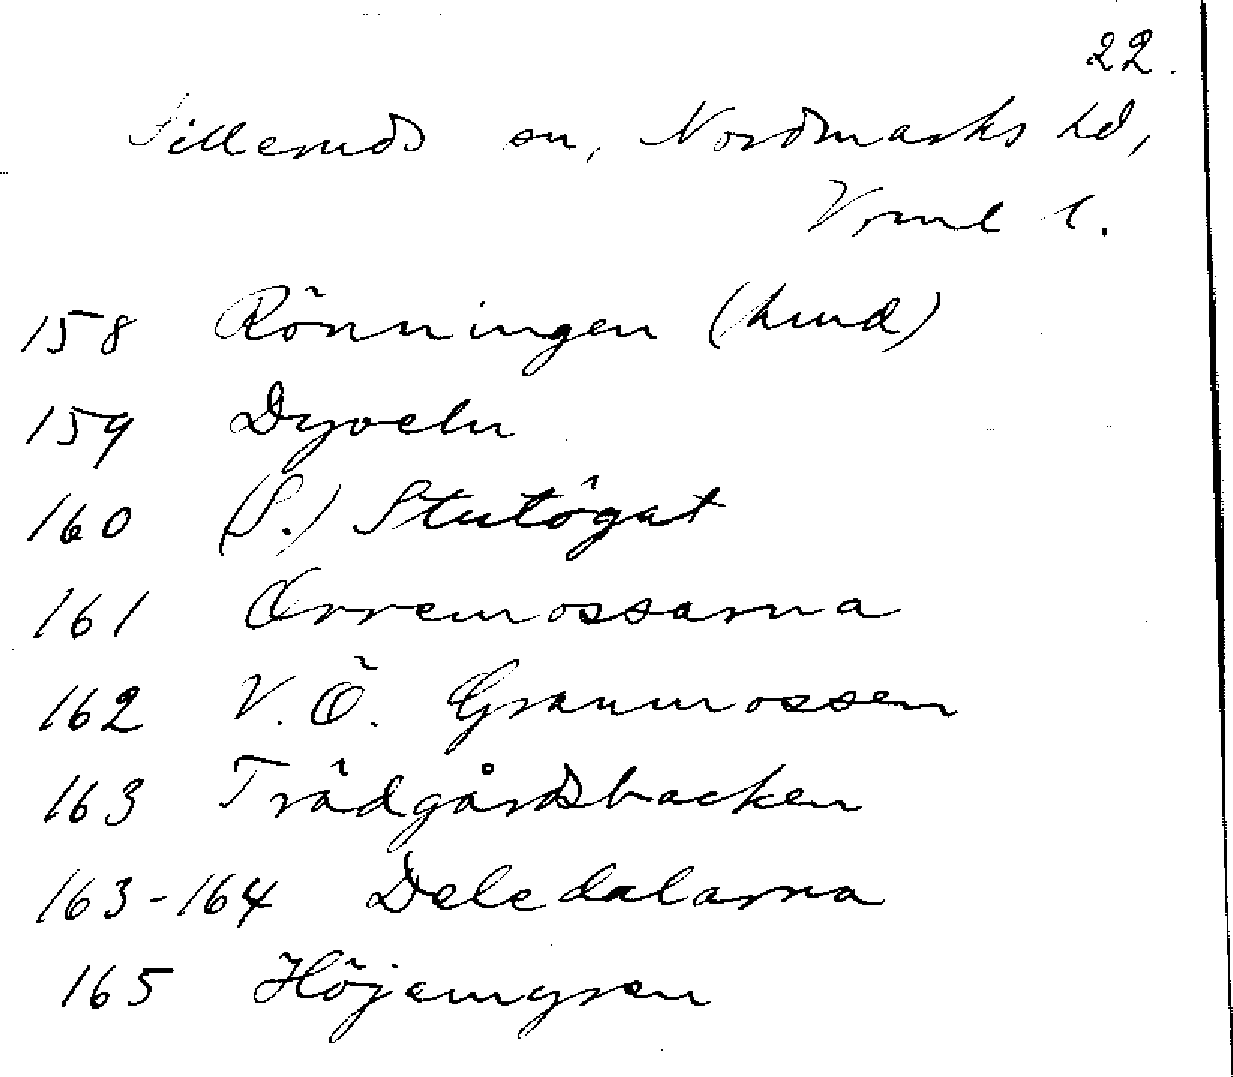 22.
Silleruds sn, Nordmarks hd,
Vrml l.
158 Rönningen (hund)
159 Dyveln
160 (S.) Stutögat
161 Orremossarna
162 V. Ö. Granmossen
163 Trädgårdsbacken
163-164 Deledalarna
165 Höjemyren